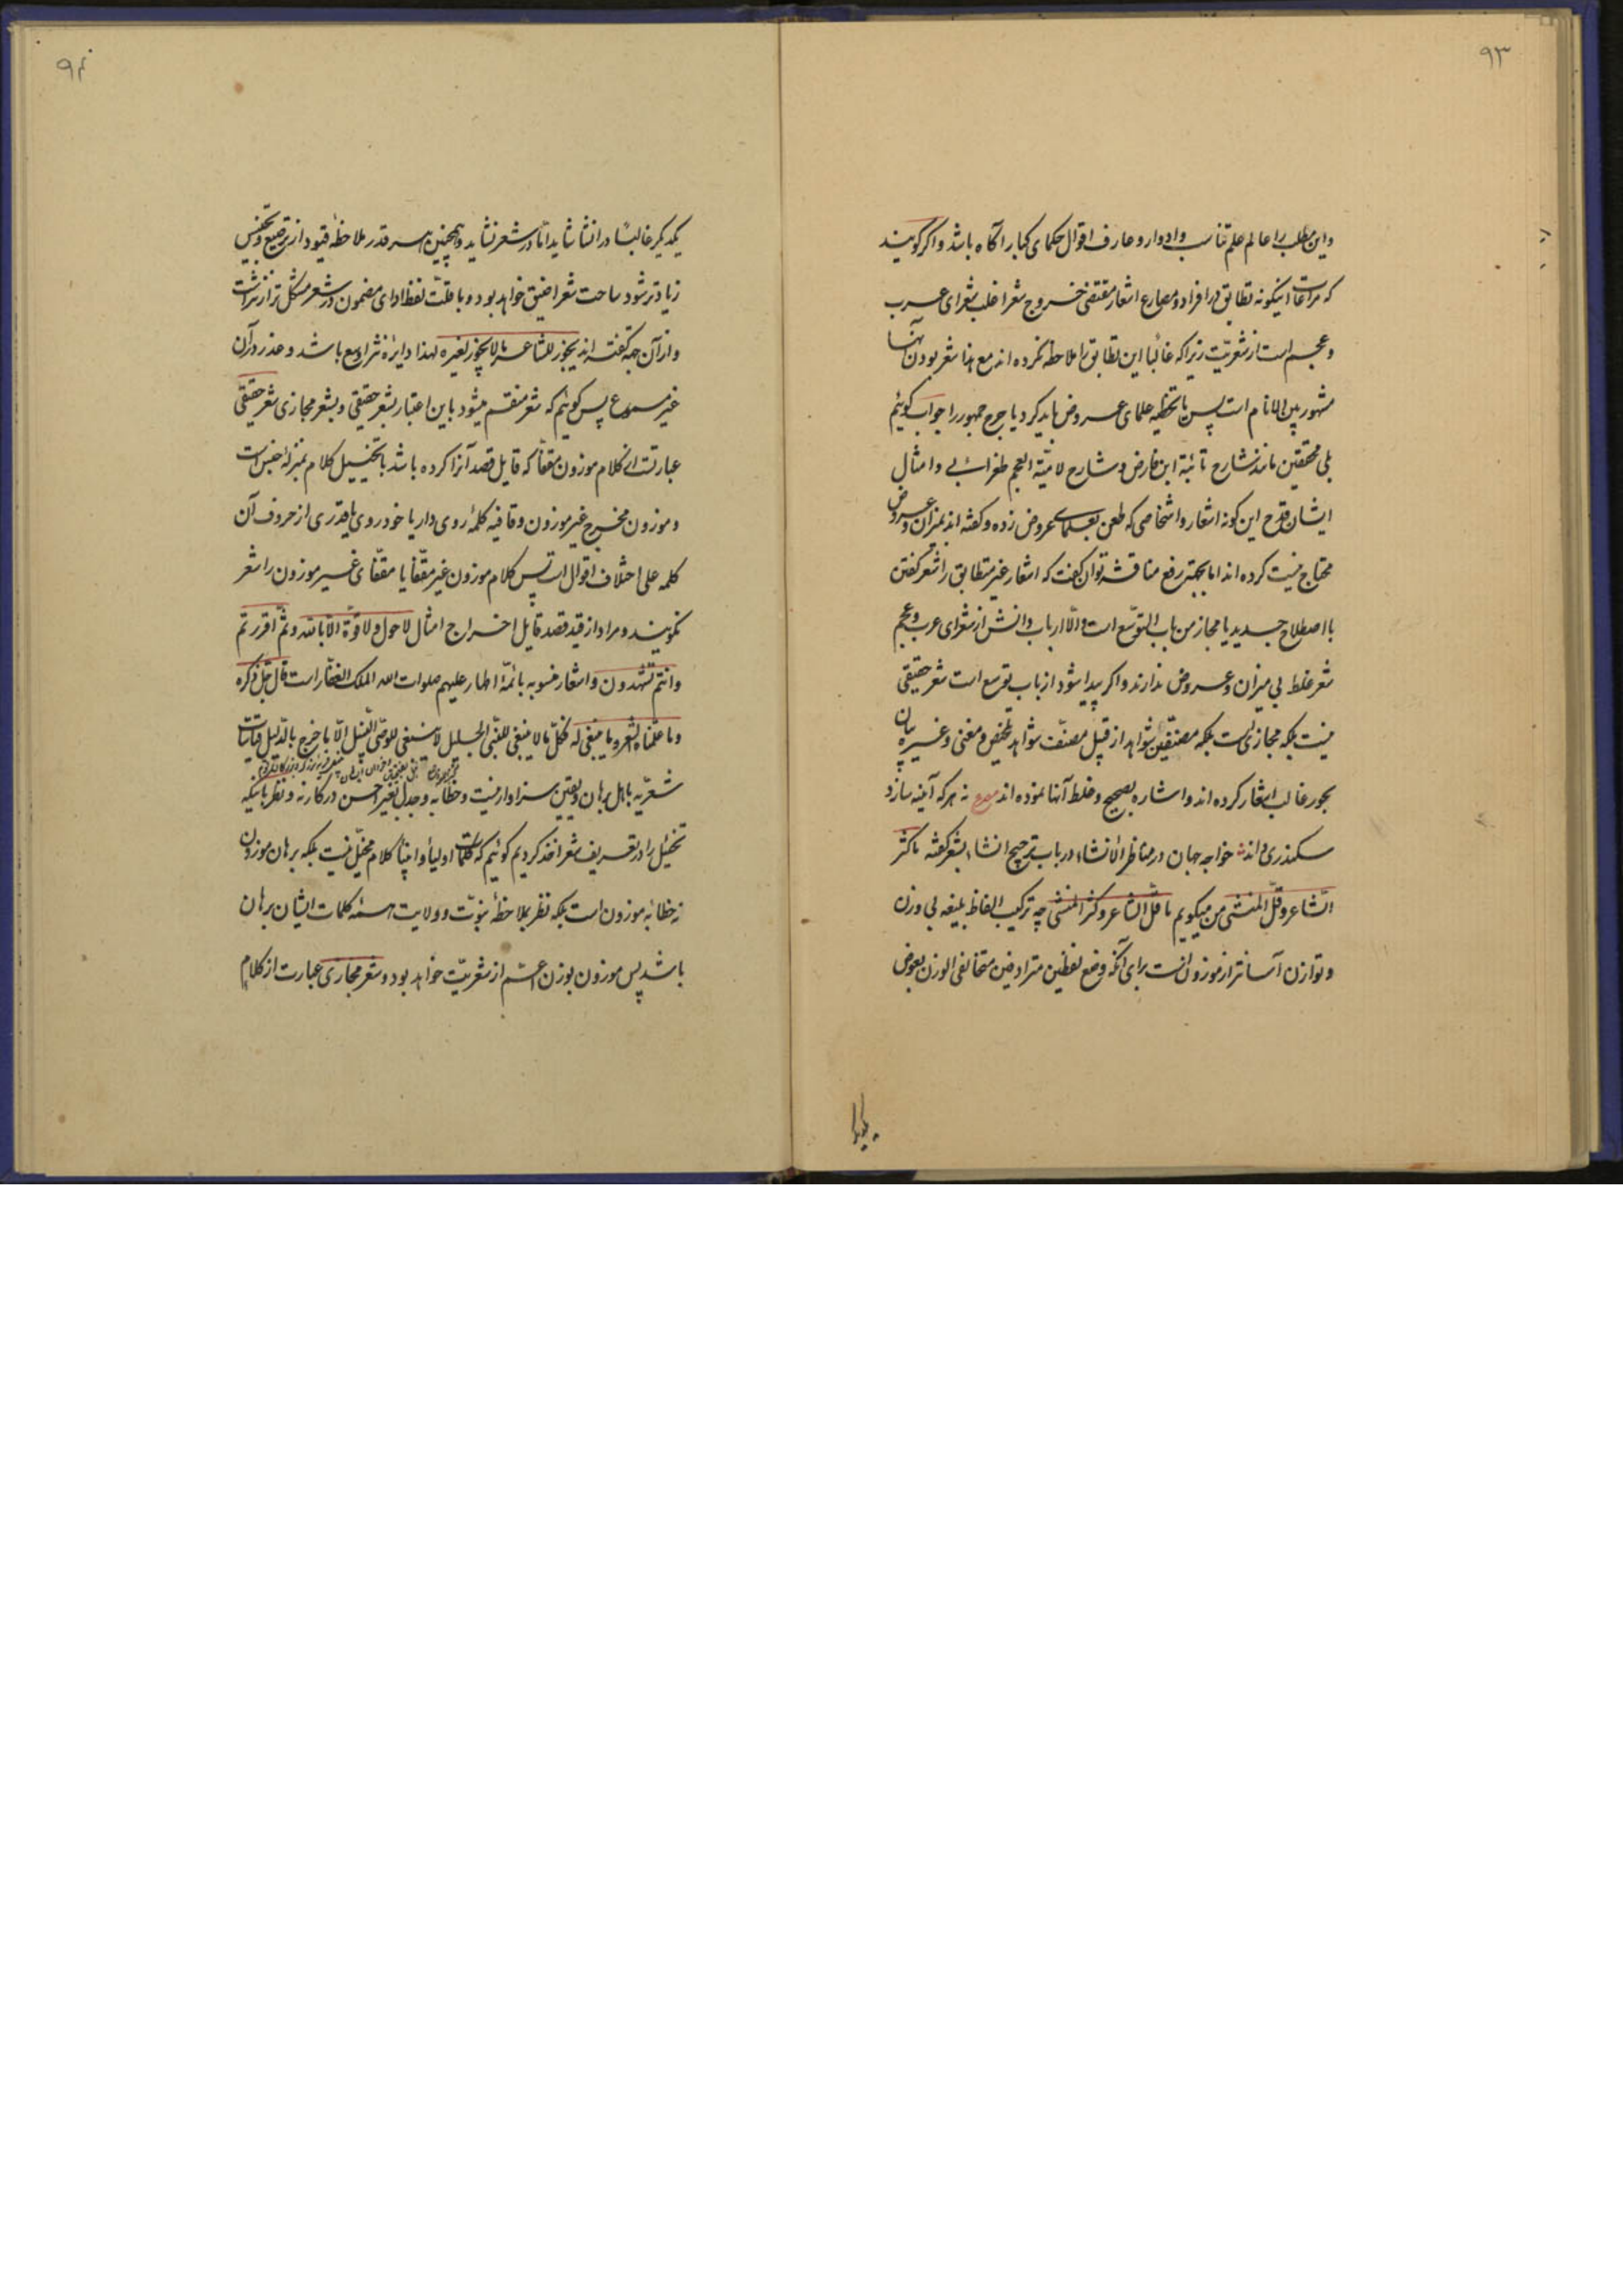 ۹۳
واین مطلب را عالم علم تناسب وادوار وعارف اقوال حکمای کبار آگاه باشد واگر گویند
که مراعات اینگونه تطابق در افراد ومصارع اشعار مقتضی خروج شعر اغلب شعرای عرب
وعجم است از شعریّت زیراکه غالبا این تطابق را ملاحظه نکرده اند مع هذا شعر بودن آنها
مشهور بین الانام است پس یا تخطیه علمای عروض باید کرد یا جرح جمهور را جواب گوئیم
بلی محققین مانند شارح تائیّه ابن فارض وشارح لامیّة العجم طغرائی وامثال
ایشان قدح این گونه اشعار واشخاصی که طعن بعلمای عروض زده وگفته اند بمیزان وعروض
محتاج نیست کرده اند اما بجهة رفع مناقشه توان گفت که اشعار غیر متطابق را شعر گفتن
با اصطلاح جدید یا مجاز من باب التوسّع است والّا ارباب دانش از شعرای عرب وعجم
شعر غلط بی میزان وعروض ندارند واگر پیدا شود از باب توسع است شعر حقیقی
نیست بلکه مجازی است بلکه مصنّفین شواهد از قبیل مصنّف شواهد تلخیص ومغنی وغیره بیان
بحور غالب اشعار کرده اند واشاره بصحیح وغلط آنها نموده اند مصرع نه هرکه آینه سازد
سکندری داند خواجه جهان در مناظر الانشاء در باب ترجیح انشاء بشعر گفته ما کثر
الشّاعر وقلّ المنشی من میگویم ما قلّ الشاعر وکثر المنشی چه ترکیب الفاظ بلیغه بی وزن
وتوازن آسانتر از موزون است برای آنکه وضع لفظین مترادفین متخالفی الوزن بعوض
یکدیگر
۹۴
یکدیگر غالبًا در انشا شاید امّا در شعر نشاید وهمچنین هر قدر ملاحظهٔ قیود از ترصیع وتجنیس
زیادتر شود ساحت شعر اضیق خواهد بود وبا قلّت لفظ ادای مضمون در شعر مشکل تر از نثر است
واز آن جهة گفته اند یجوز للشاعر ما لا یجوز لغیره لهذا دایرهٔ نثر اوسع باشد وعذر در آن
غیر مسموع پس گوئیم که شعر منقسم میشود باین اعتبار بشعر حقیقی وبشعر مجازی شعر حقیقی
عبارتست از کلام موزون مقفّا که قایل قصد آنرا کرده باشد با تخییل کلام بمنزلهٔ جنس است
وموزون مخرج غیر موزون وقافیه کلمهٔ روی دار یا خود روی یا قدری از حروف آن
کلمه علی اختلاف اقوال است پس کلام موزون غیر مقفّا یا مقفّای غیر موزون را شعر
نگویند ومراد از قید قصد قایل اخراج امثال لا حول ولا قوّة الّا بالله وثمّ اقررتم
وانتم تشهدون واشعار منسوبه بائمّه اطهار علیهم صلوات الله الملک الغفّار است قال جلّ ذکره
وما علّمناه الشعر وما ینبغی له فکلّ ما لا ینبغی للنّبی الجلیل لا ینبغی للوصّی النبیل الّا ما خرج بالدّلیل قیاسات
شعریّه باهل برهان ویقین سزاوار نیست وخطابه وجدل بغیر احسن در کار نه ونظر باینکه
تخییل را در تعریف شعر اخذ کردیم گوئیم که کلمات اولیا وانبیا کلام مخیّل نیست بلکه برهان موزون
نه خطابهٔ موزون است بلکه نظر بملاحظهٔ نبوّت وولایت همه کلمات ایشان برهان
باشد پس موزون بوزن اعمّ از شعریّت خواهد بود وشعر مجازی عبارت از کلام